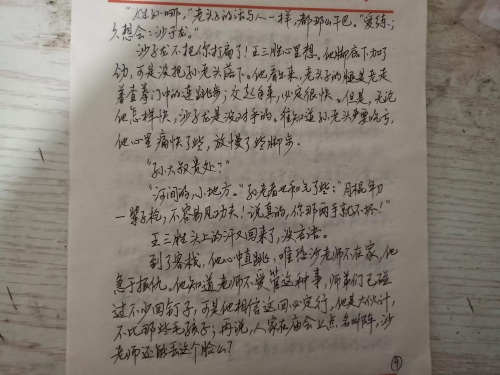 "姓孙哪,"老头子的话与人一样,都那么干巴。"爱练;
想会会沙子龙。"
沙子龙不把你打扁了!王三胜心里想。他脚底下加了
劲,可是没把孙老头落下。他看出来,老头子的腿是老走
着查拳门中的连跳步;交起手来,必定很快。但是,无论
他怎样快,沙子龙是没对手的。准知道孙老头要吃亏,
他心里痛快了些,放慢了些脚步。
"孙大叔贵处?"
"河间的,小地方。"孙老者也和气了些:"月棍年刀
一辈子枪,不容易见功夫!说真的,你那两手就不坏!"
王三胜头上的汗又回来了,没言语。
到了客栈,他心中直跳,唯恐沙老师不在家,他
急于报仇。他知道老师不爱管这种事,师弟们已碰
过不少回钉子,可是他相信这回必定行,他是大伙计,
不比那些毛孩子;再说,人家在庙会上点名叫阵,沙
老师还能丢这个脸么?
④